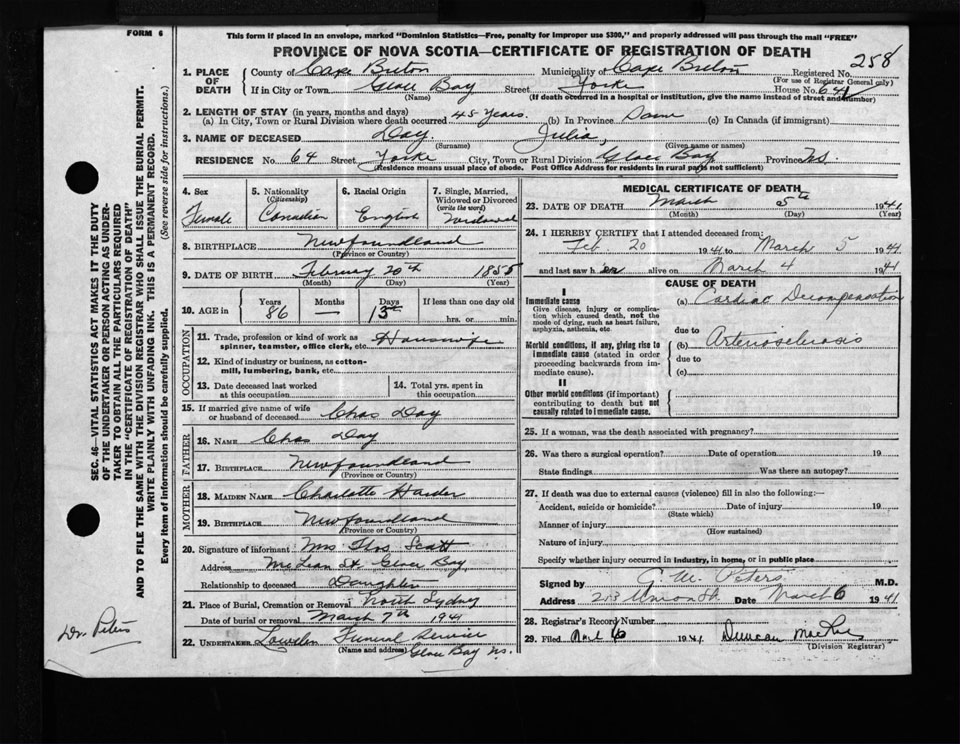 FORM 6
This form if placed in an envelope, marked "Dominion Statistics—Free, penalty for improper use $300," and properly addressed will pass through the mail "FREE"
PROVINCE OF NOVA SCOTIA—CERTIFICATE OF REGISTRATION OF DEATH
258
1. PLACE OF DEATH
County of Cape Breton Municipality of Cape Breton Registered No.
(For use of Registrar General only)
If in City or Town Glace Bay Street Yorke House No. 64
(Name) (If death occurred in a hospital or institution, give the name instead of street and number)
2. LENGTH OF STAY (in years, months and days)
(a) In City, Town or Rural Division where death occurred 45 years. (b) In Province Same (c) In Canada (if immigrant)
3. NAME OF DECEASED Day, Julia,
(Surname) (Given name or names)
RESIDENCE No. 64 Street Yorke City, Town or Rural Division Glace Bay Province N.S.
(Residence means usual place of abode. Post Office Address for residents in rural parts not sufficient)
4. Sex Female
5. Nationality (Citizenship) Canadian
6. Racial Origin English
7. Single, Married, Widowed or Divorced (write the word) Widowed
8. BIRTHPLACE Newfoundland
(Province or Country)
9. DATE OF BIRTH February 20th 1855
(Month) (Day) (Year)
10. AGE in Years 86 Months — Days 13 If less than one day old
hrs. or min.
OCCUPATION
11. Trade, profession or kind of work as spinner, teamster, office clerk, etc. Housewife
12. Kind of industry or business, as cotton-mill, lumbering, bank, etc.
13. Date deceased last worked at this occupation
14. Total yrs. spent in this occupation
15. If married give name of wife or husband of deceased Chas Day
FATHER
16. NAME Chas Day
17. BIRTHPLACE Newfoundland
(Province or Country)
MOTHER
18. MAIDEN NAME Charlotte Harder
19. BIRTHPLACE Newfoundland
(Province or Country)
20. Signature of informant Mrs Thos Scott
Address McLean St. Glace Bay
Relationship to deceased Daughter
21. Place of Burial, Cremation or Removal North Sydney
Date of burial or removal March 7th 1941
22. UNDERTAKER Funeral Service
(Name and address) Glace Bay N.S.
MEDICAL CERTIFICATE OF DEATH
23. DATE OF DEATH March 5th 1941
(Month) (Day)
24. I HEREBY CERTIFY that I attended deceased from:
Feb 20 1941 to March 5 1941
and last saw her alive on March 4 1941
CAUSE OF DEATH
I
Immediate cause
Give disease, injury or complication which caused death, not the mode of dying, such as heart failure, asphyxia, asthenia, etc
(a) Cardiac Decompensation
due to
Morbid conditions, if any, giving rise to immediate cause (stated in order proceeding backwards from immediate cause).
(b) Arteriosclerosis
due to
(c)
II
Other morbid conditions (if important) contributing to death but not causally related to immediate cause.
25. If a woman, was the death associated with pregnancy?
26. Was there a surgical operation? Date of operation 19
State findings Was there an autopsy?
27. If death was due to external causes (violence) fill in also the following:—
Accident, suicide or homicide? Date of injury 19
(State which)
Manner of injury
(How sustained)
Nature of injury
Specify whether injury occurred in industry, in home, or in public place
Signed by G. M. Peters M.D.
Address Union St. Date March 6 1941
28. Registrar's Record Number
29. Filed 6 1941 Duncan
(Division Registrar)
SEC. 46—VITAL STATISTICS ACT MAKES IT THE DUTY
OF THE UNDERTAKER OR PERSON ACTING AS UNDER-
TAKER TO OBTAIN ALL THE PARTICULARS REQUIRED
IN THE "CERTIFICATE OF REGISTRATION OF DEATH"
AND TO FILE THE SAME WITH THE DIVISION REGISTRAR WHO SHALL ISSUE THE BURIAL PERMIT.
WRITE PLAINLY WITH UNFADING INK. THIS IS A PERMANENT RECORD.
Every item of information should be carefully supplied. (See reverse side for instructions.)
Dr. Peters